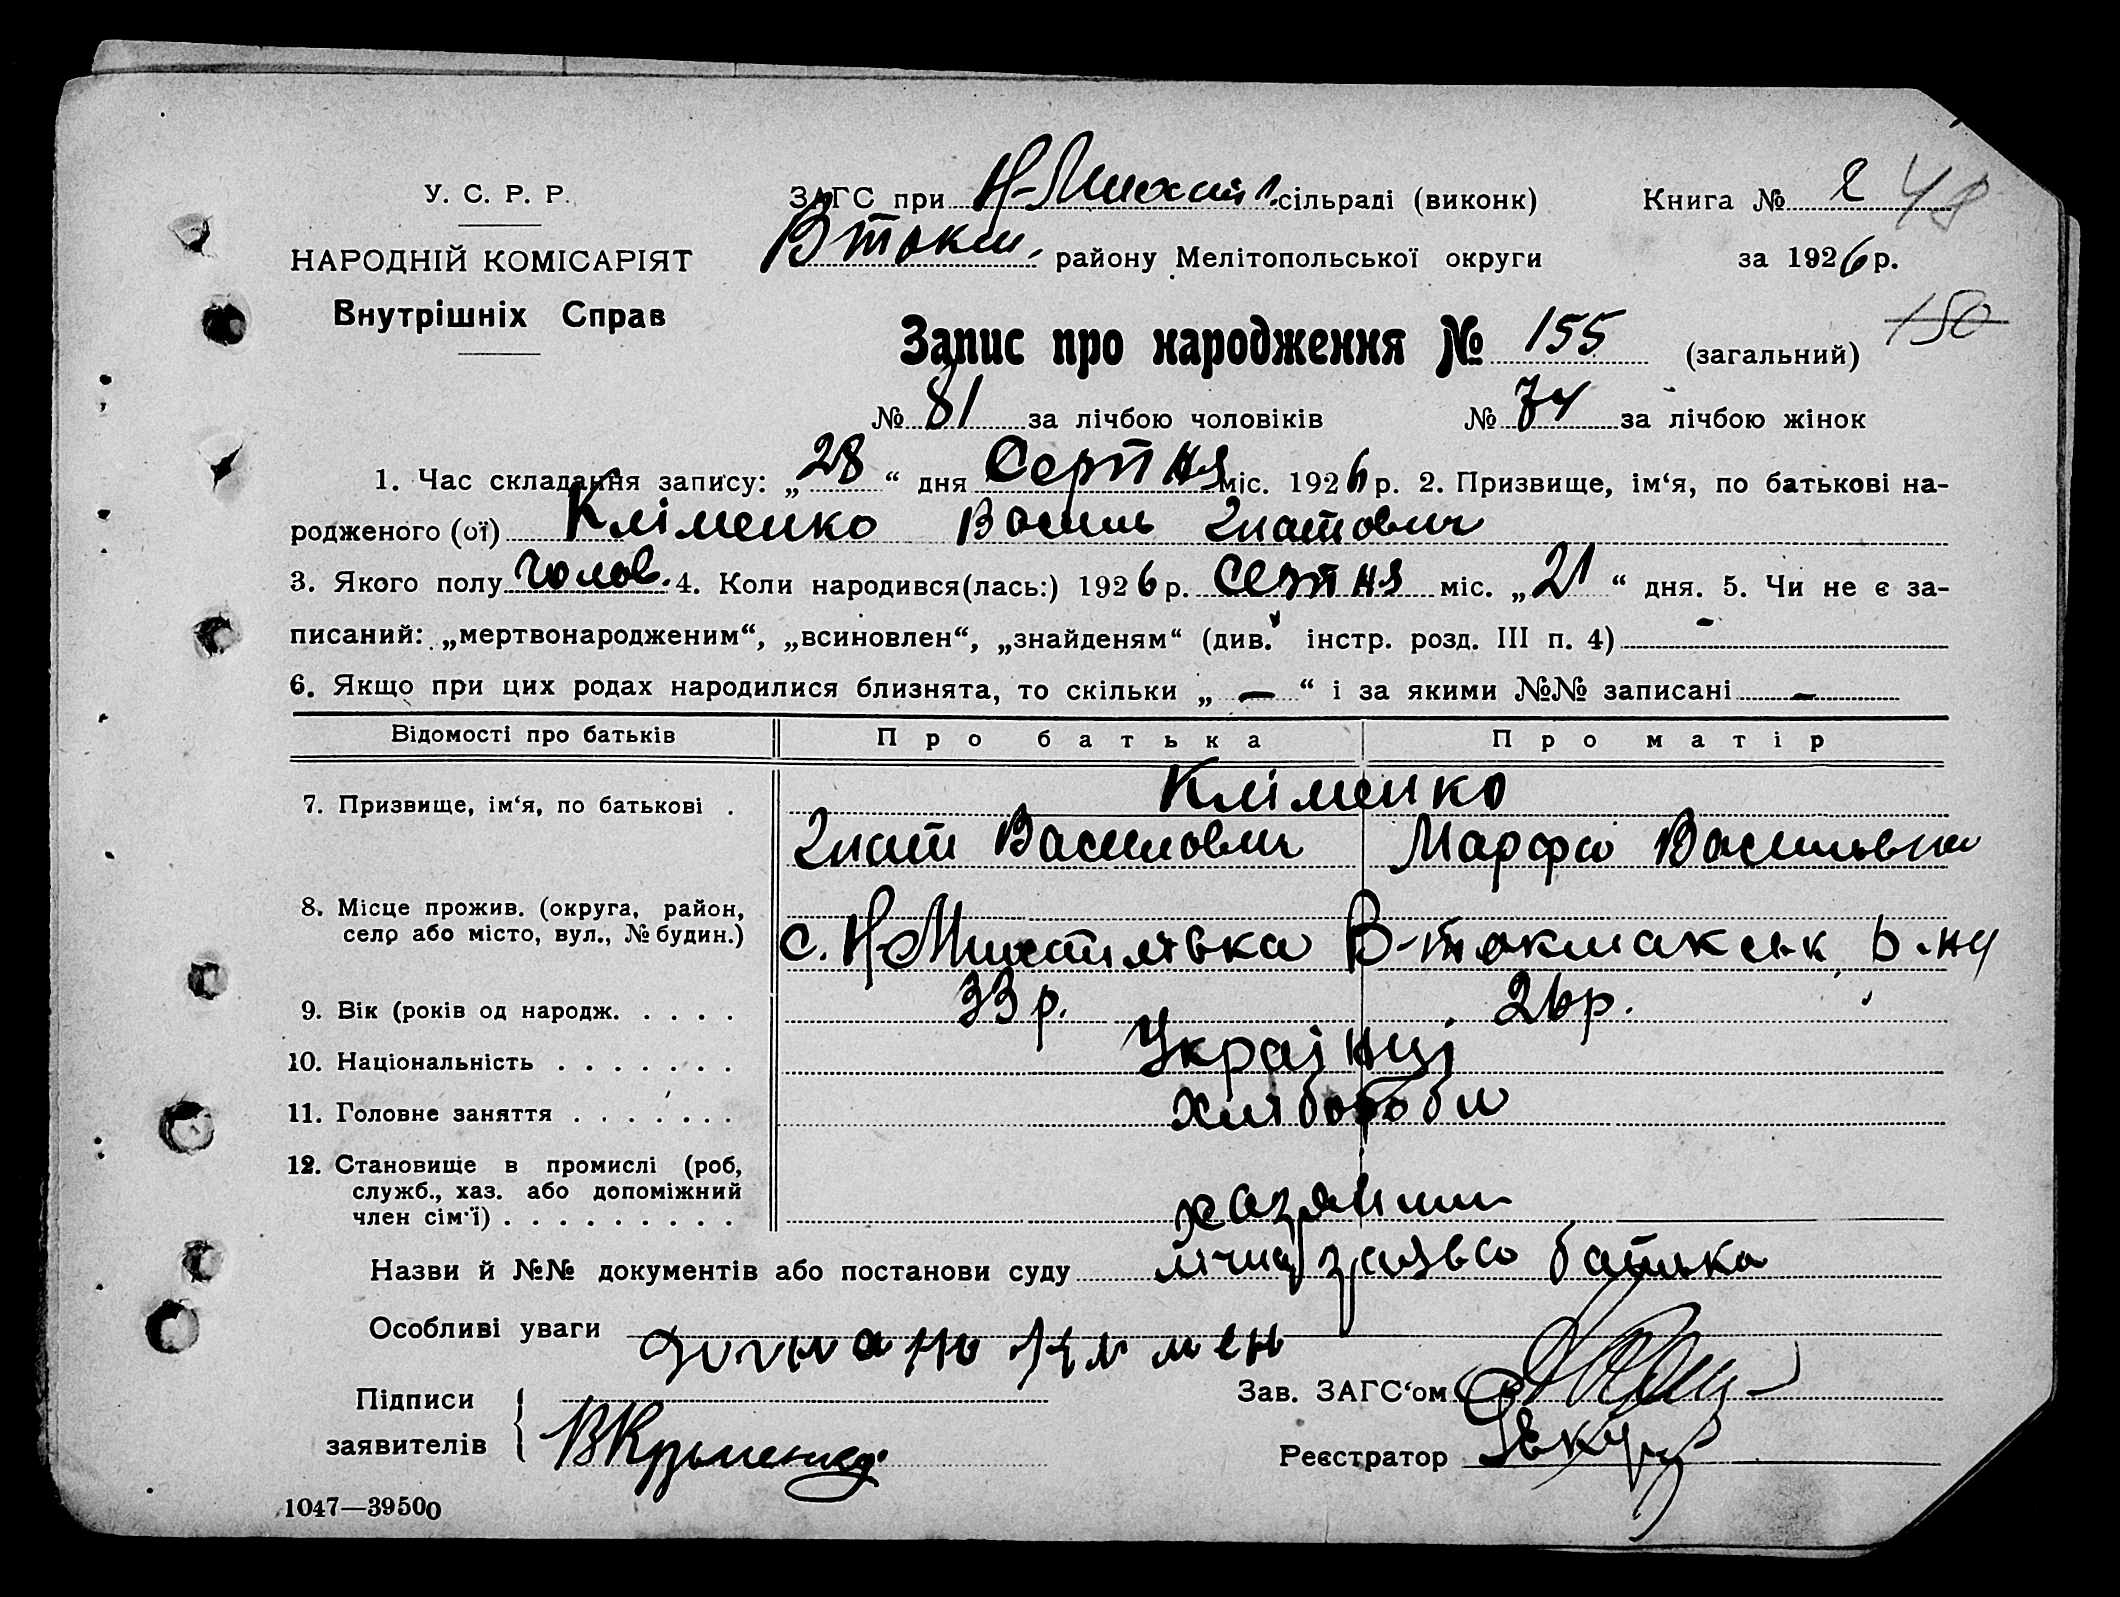 У. С. Р. Р.
НАРОДНІЙ КОМІСАРІЯТ
Внутрішніх Справ
ЗАГС при Н-Михайл. сільраді (виконк)
В токм. району Мелітопольської округи
Книга № 2 48
за 1926 р.
Запис про народження № 155 (загальний) 150
№ 81 за лічбою чоловіків № 74 за лічбою жінок
1. Час складання запису: „28“ дня Серпня міс. 1926 р. 2. Призвище, ім‘я, по батькові на-
родженого (ої) Кліменко Василь Гнатович
3. Якого полу чолов. 4. Коли народився(лась:) 1926 р. Серпня міс. „21“ дня. 5. Чи не є за-
писаний: „мертвонародженим“, „всиновлен“, „знайденям“ (див. інстр. розд. III п. 4) -
6. Якщо при цих родах народилися близнята, то скільки „ — “ і за якими №№ записані —
Відомості про батьків Про батька Про матір
7. Призвище, ім‘я, по батькові . Кліменко
Гнат Василович Марфа Васильвна
8. Місце прожив. (округа, район,
село або місто, вул., № будин.) с. Н-Михайлівка В-токмакськ р-ну
9. Вік (років од народж. . . . . 33 р. 26 р.
10. Національність . . . . . . . Українці
11. Головне заняття . . . . . . . хлібороби
12. Становище в промислі (роб,
служб., хаз. або допоміжний
член сім‘ї) . . . . . . . . . хазяїни
Назви й №№ документів або постанови суду лічна заява батька
Особливі уваги
Підписи
заявителів
Зав. ЗАГС‘ом
Реєстратор
1047—39500